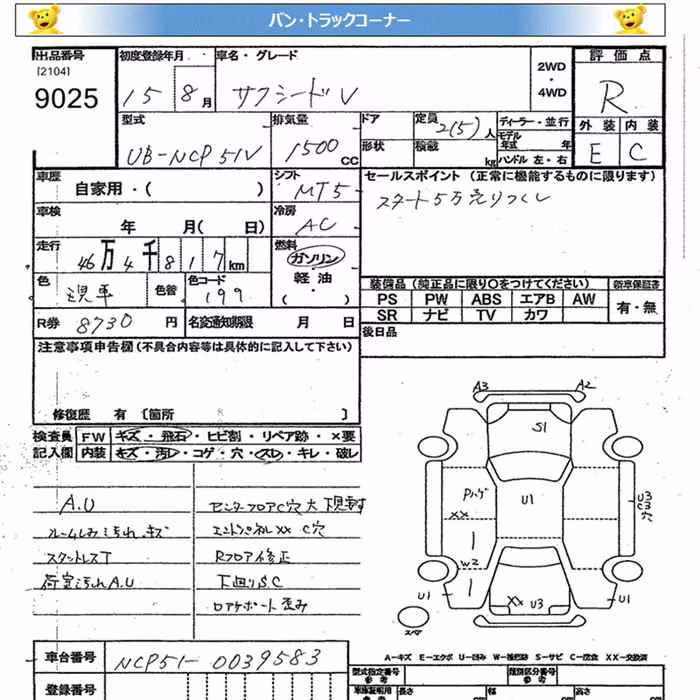 バン・トラックコーナー
出品番号
[2104]
9025
初度登録年月
15 8月
車名・グレード
サクシードV
2WD
・
4WD
評価点
R
外装 内装
E C
型式
UB-NCP51V
排気量
1500cc
ドア
定員
2(5)人
形状
積載
kg
ディーラー・並行
モデル年式 年
ハンドル 左・右
車歴
自家用・( )
シフト
MT5
セールスポイント(正常に機能するものに限ります)
スタート5万売りつくし
車検
年 月( 日)
冷房
AC
走行
46万4千817km
燃料
ガソリン
軽油
・( )
色
色替
色コード
199
装備品(純正品に限り〇をつけてください)
新車保証書
PS PW ABS エアB AW
SR ナビ TV カワ
有・無
R券 8730円
名変通知期限 月 日
後日品
注意事項申告欄(不具合内容等は具体的に記入して下さい)
修復歴 有 [箇所 ]
検査員記入欄
FW キズ・飛石・ヒビ割・リペア跡・×要
内装 キズ・汚レ・コゲ・穴・スレ・キレ・破レ
A.U
ルームしみ汚れ、キズ
スタットレスT
荷室汚れA.U
センターフロアC穴大 下現車す
エンドパネルXX C穴
Rフロア修正
下回りSC
ロアサポート歪み
A3 A2
S1
Pハゲ
U1
XX
U3
C3
穴
W2
U1
XX U3
U1
スペア
A-キズ E-エクボ U-凹み W-補修跡 S-サビ C-腐食 XX-交換済
車台番号
NCP51-0039583
登録番号
型式指定番号
参考
類別区分番号
参考
長さ
cm
幅
cm
高さ
cm